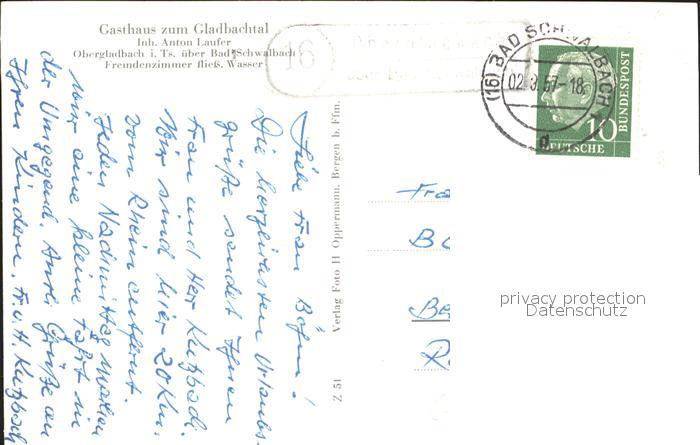 Gasthaus zum Gladbachtal
Inh. Anton Laufer
Obergladbach i. Ts. über Bad Schwalbach
Fremdenzimmer fließ. Wasser
16
(16) BAD SCHWALBACH 1
02.9.57-18
d
10
DEUTSCHE
BUNDESPOST
Liebe Frau Böhm!
Die herzlichsten Urlaubs-
grüße sendet Ihnen
Frau und Herr
Wir sind hier 20 km.
vom Rhein entfernt.
Jeden Nachmittag machen
wir eine kleine Fahrt in
der Umgegend. Grüße an
Ihren Kindern. F. u. H.
Z 51 Verlag Foto H Oppermann, Bergen b. Ffm.
Fra
B
Be
R
privacy protection
Datenschutz